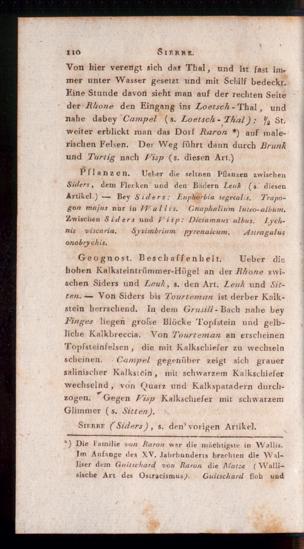 110 SIERRE.
Von hier verengt sich das Thal, und ist fast im-
mer unter Wasser gesetzt und mit Schilf bedeckt.
Eine Stunde davon sieht man auf der rechten Seite
der Rhone den Eingang ins Loetsch-Thal, und
nahe dabey Campel (s. Loetsch-Thal); ¾ St.
weiter erblickt man das Dorf Raron *) auf male-
rischen Felsen. Der Weg führt dann durch Brunk
und Turtig nach Visp (s. diesen Art.)
Pflanzen. Ueber die seltnen Pflanzen zwischen
Siders, dem Flecken und den Bädern Leuk (s. diesen
Artikel.) — Bey Siders: Euphorbia segetalis. Trapo-
gon majus nur in Wallis. Gnaphalium luteo-album.
Zwischen Siders und Visp: Dictamnus albus. Lych-
nis viscaria. Sysimbrium pyrenaicum. Astragalus
onobrychis.
Geognost. Beschaffenheit. Ueber die
hohen Kalksteintrümmer-Hügel an der Rhone zwi-
schen Siders und Leuk, s. den Art. Leuk und Sit-
ten. — Von Siders bis Tourteman ist derber Kalk-
stein herrschend. In dem Grusill-Bach nahe bey
Finges liegen grosse Blöcke Topfstein und gelb-
liche Kalkbreccia. Von Tourteman an erscheinen
Topfsteinfelsen, die mit Kalkschiefer zu wechseln
scheinen. Campel gegenüber zeigt sich grauer
salinischer Kalkstein, mit schwarzem Kalkschiefer
wechselnd, von Quarz und Kalkspatadern durch-
zogen. Gegen Visp Kalkschiefer mit schwarzem
Glimmer (s. Sitten).
SIERRE (Siders), s. den vorigen Artikel.
*) Die Familie von Raron war die mächtigste in Wallis.
Im Anfange des XV. Jahrhunderts brachten die Wal-
liser dem Guitschard von Raron die Matze (Walli-
sische Art des Ostracismus). Guitschard floh und